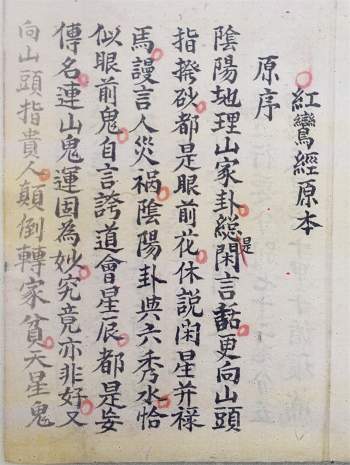 紅鸞經原本
原序
陰陽地理山家卦總是閑言話更向山頭
指撥砂都是眼前花休説闲星并禄
馬謾言人災禍陰陽卦與六秀水恰
似眼前鬼自言誇道會星辰都是妄
傳名連山鬼運固為妙究竟亦非好又
向山頭指貴人顛倒轉家貧天星鬼